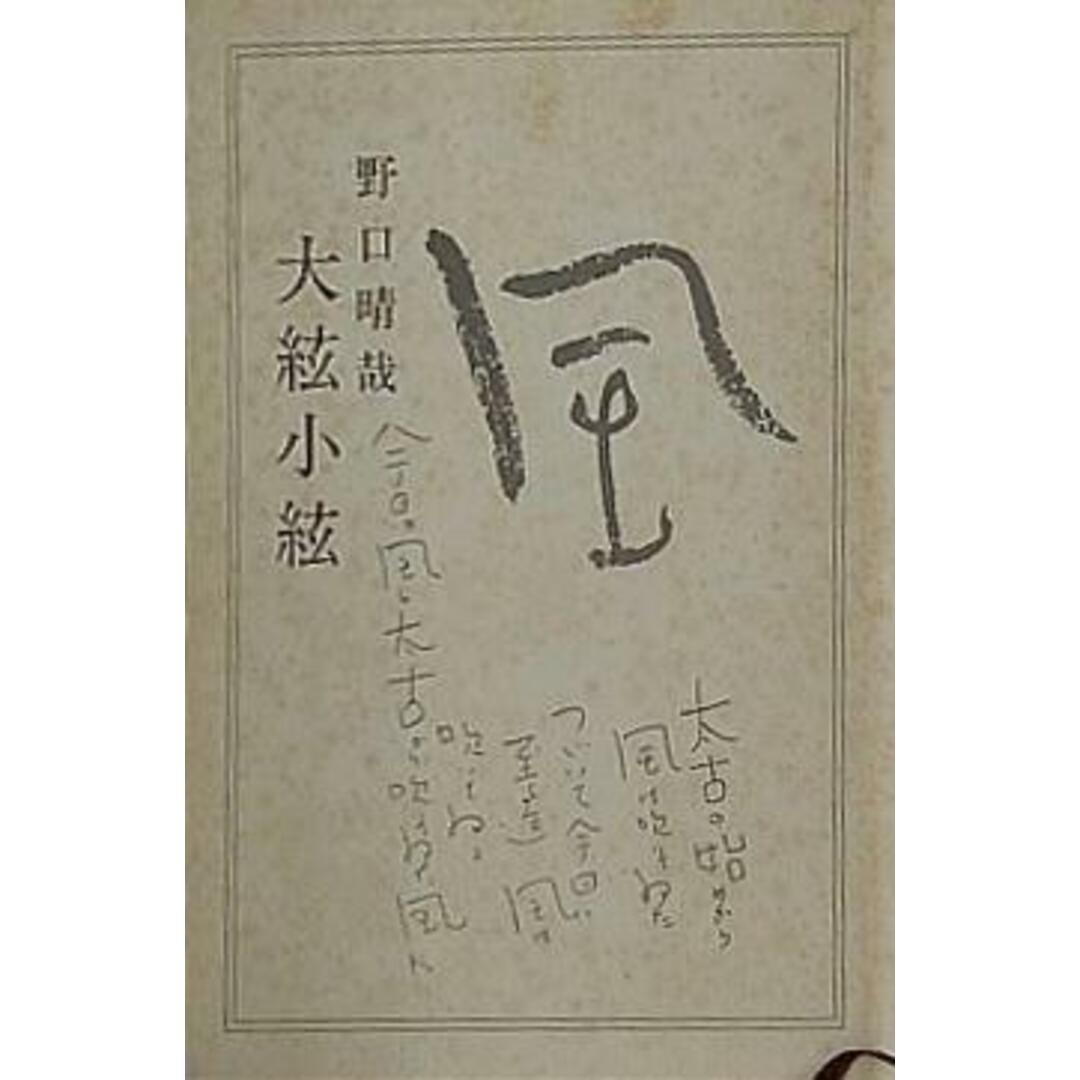 風
太古の始めから
風は吹いてゐた
つゞいて今日に
至る迄 風は
吹いてゐる
今日の風も太古から吹いてゐる風だ
野口晴哉
大絃小絃